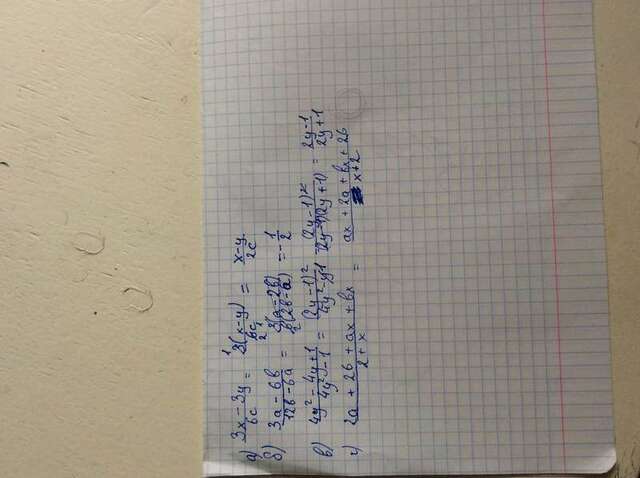 а) 3x - 3y / 6c = 3(x-y) / 6c = x-y / 2c
б) 3a - 6b / 12b - 6a = 3(a-2b) / 6(2b-a) = - 1/2
в) 4y² - 4y + 1 / 4y² - 1 = (2y-1)² / 4y² - 1 (2y-1)² / (2y-1)(2y+1) = 2y-1 / 2y+1
г) 2a + 2b + ax + bx / 2 + x = ax + 2a + bx + 2b / x+2